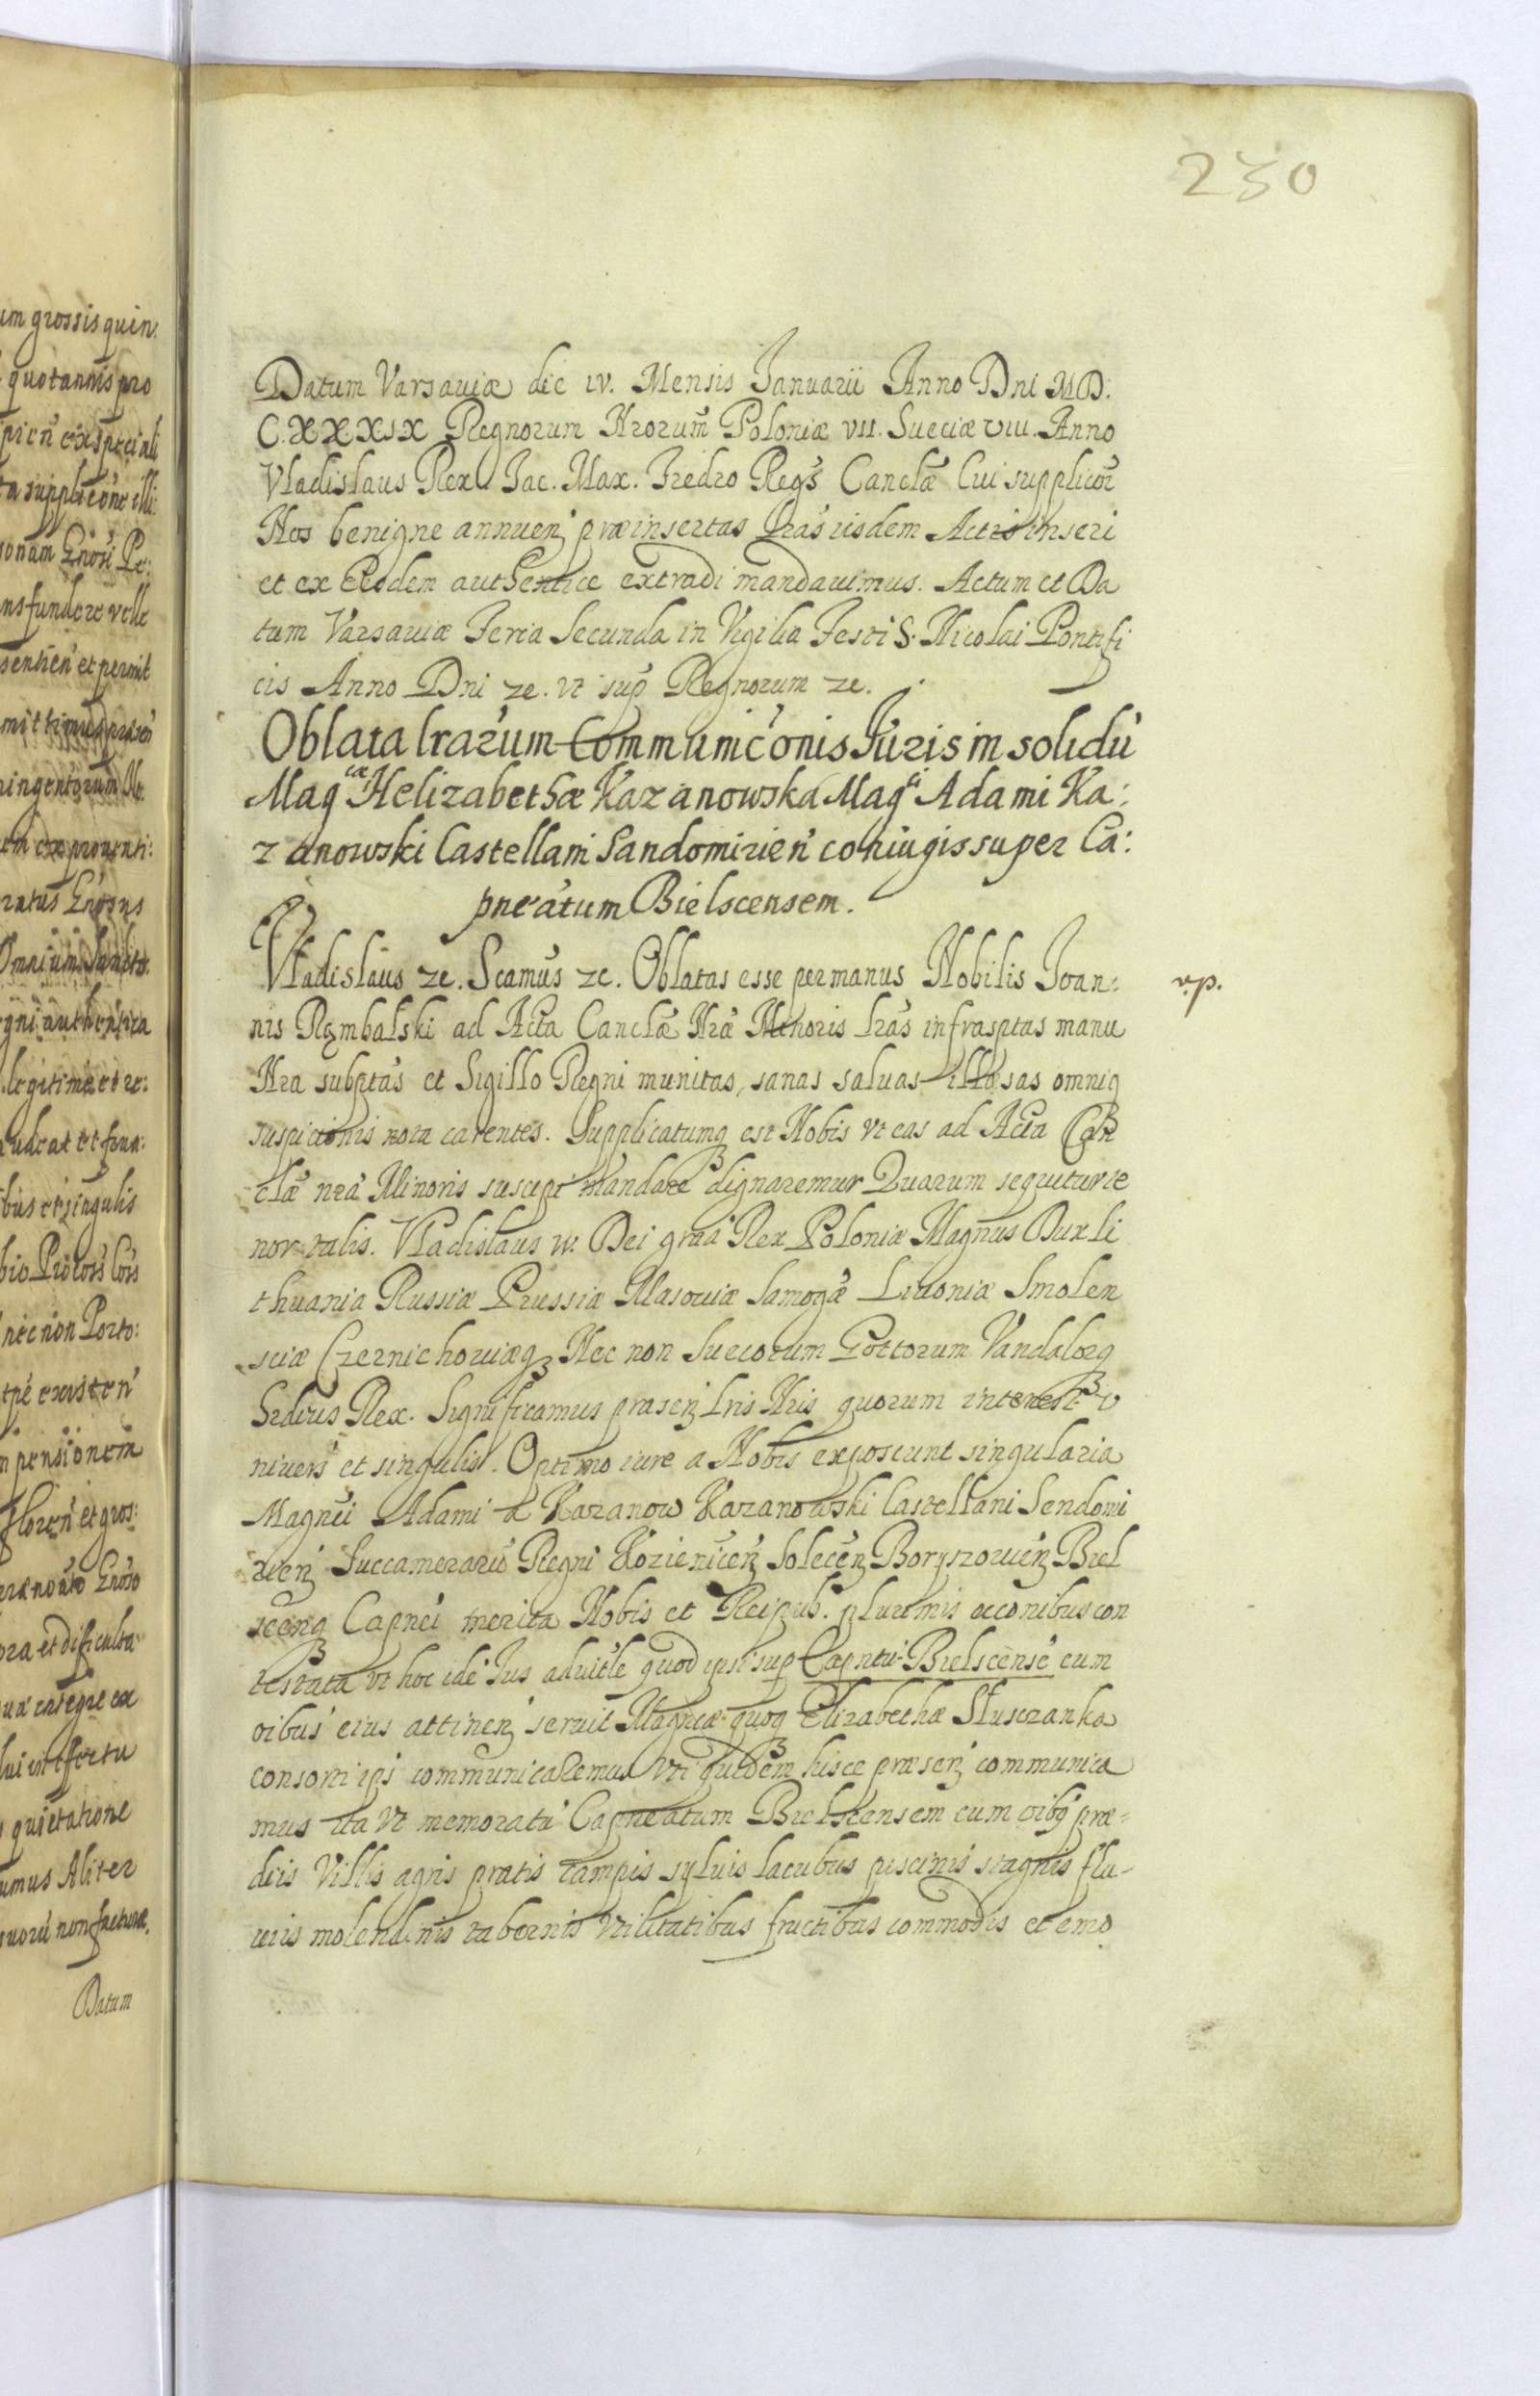 230
um grossis quin:
quotannis pro
pień ex speciali
ta supplicõne illi:
onam Gnosi Pe:
nsfundere velle
sentień et permit
mittimusq præseń
ingentorum
em ex proventi:
ratus Gnosus
Omnium Sancto:
gni authentica
legitime et re:
audeat et
bus et singulis
nec non Porto:
tpe existeń
m pensionem
floreń et gros:
ra et dificulta:
integre ex
effectu
quietatione
umus Aliter
uorũ non facturæ.
Datum
Datum Varsaviæ die IV. Mensis Januarii Anno Dni MD:
C.XXXIX Regnorum Nrorum̃ Poloniæ VII. Sueciæ VIII. Anno
Vladislaus Rex Jac. Max. Fredro Regs̃ Canclæ̃ Cui supplicõr
Nos benigne annueń præinsertas Lrãs iisdem Actis inseri
et ex Eisdem authentice extradi mandavimus. Actum et Da
tum Varsaviæ Feria Secunda in Vigilia Festi S. Nicolai Pontifi
cis Anno Dni zc. vt sup̃ Regnorum zc.
Oblata lrarũm Communicõnis Juris in solidũ
Mag^cæ Helizabethæ Kazanowska Mag^ci Adami Ka:
zanowski Castellani Sandomirień coniugis super Ca:
pneãtum Bielscensem.
Vladislaus zc. Scamũs zc. Oblatas esse per manus Nobilis Joan:
nis Rembalski ad Acta Canclæ̃ Nræ̃ Minoris Lrãs infrasptas manu
Nra subptãs et Sigillo Regni munitas, sanas salvas illæsas omniq
suspicionis nota carentes. Supplicatumq est Nobis vt eas ad Acta Can
clæ̃ nræ̃ Minoris suscipi mandare dignaremur Quarum sequitur te
nor talis. Vladislaus IV. Dei graã Rex Poloniæ Magnus Dux Li
thuania Russiæ Prussiæ Masoviæ Samogæ̃ Livoniæ Smolen
sciæ Czernichoviæq Nec non Suecorum Gottorum Vandalorq
hrdrius Rex. Significamus præseń Lris Nris quorum interest v
nivers̃ et singulis. Optimo iure a Nobis exposcunt singularia
Magnĩi Adami a Kazanow Kazanowski Castellani Sendomi
rień Succamerariĩ Regni Kozieniceń Soleceń Boryszowień Biel
scenq Capnei merita Nobis et Reipub. plurimis occonibus con
testata vt hoc idẽ Jus advitle quod ipsi sup Capnetũ Bielscensẽ cum
oibus eius attineń servit Magnicæ quoq Elizabethæ Słuszanka
consorti ipsi communicaremus Vti quidem hisce præseń communica
mus ita vt memoratũ Capneatum Bielscensem cum oibq præ-
diis Villis agris pratis campis sylvis lacubus piscinis stagnis flu-
viis molendinis tabernis Vtilitatibus fructibus commodis et emo